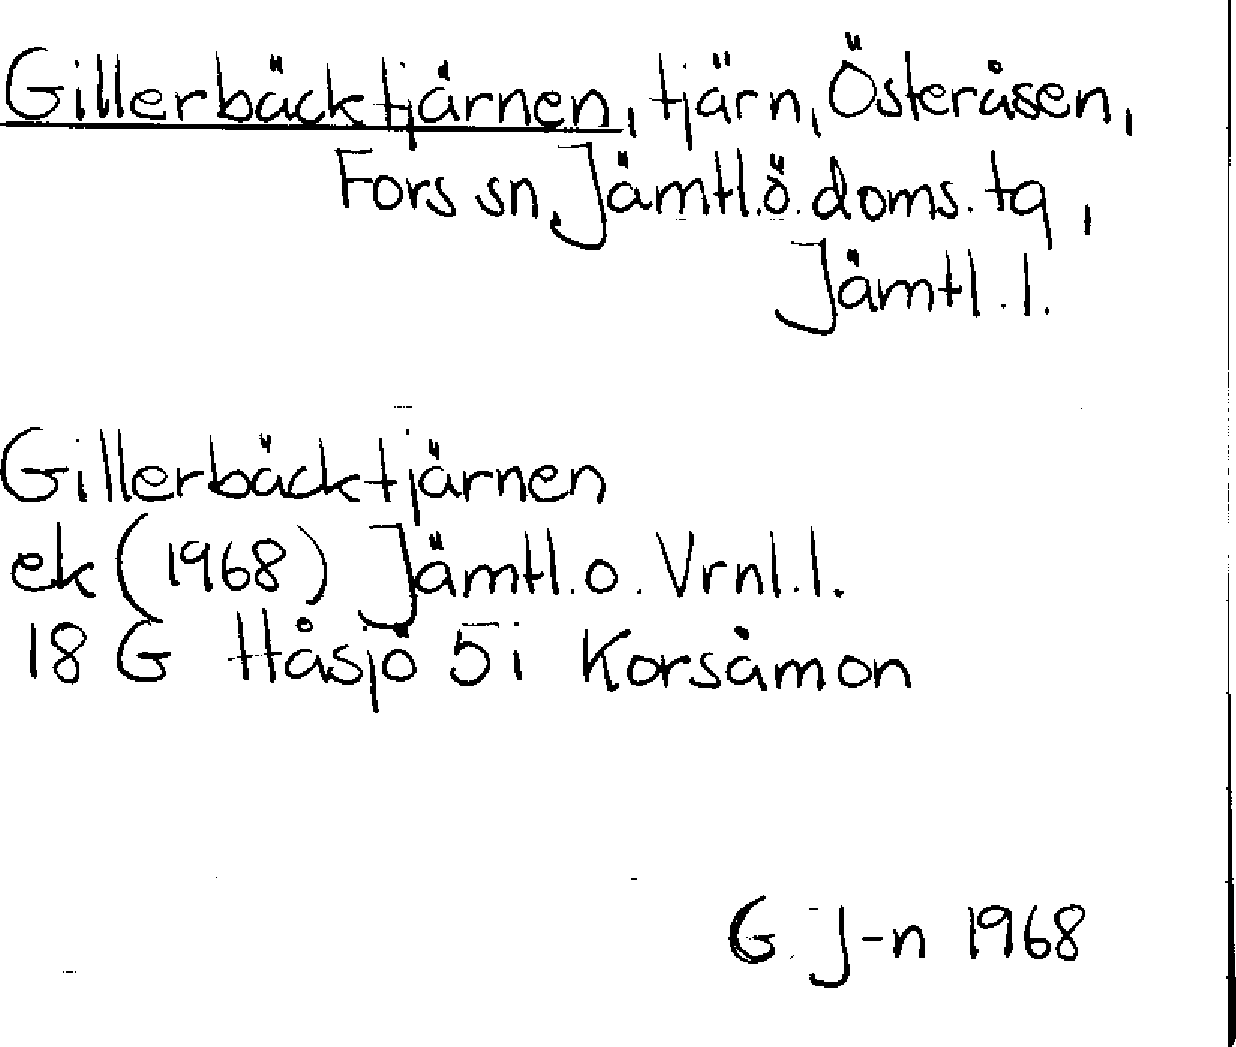 Gillerbäcktjärnen, tjärn, Österåsen,
Fors sn, Jämtl.ö. doms. tg,
Jämtl. l.
Gillerbäcktjärnen
ek (1968) Jämtl. o. Vrnl. l.
18 G Håsjö 5i Korsåmon
G. J-n 1968